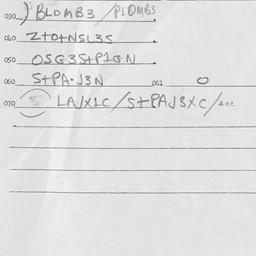 030 BLOMB3 / PLOMB3
040 Z+O+NSL3S
050 OSG3S+P1GN
060 S+PA.J3N 061 O
070 S LAJX1C/S+PAJ3XC/